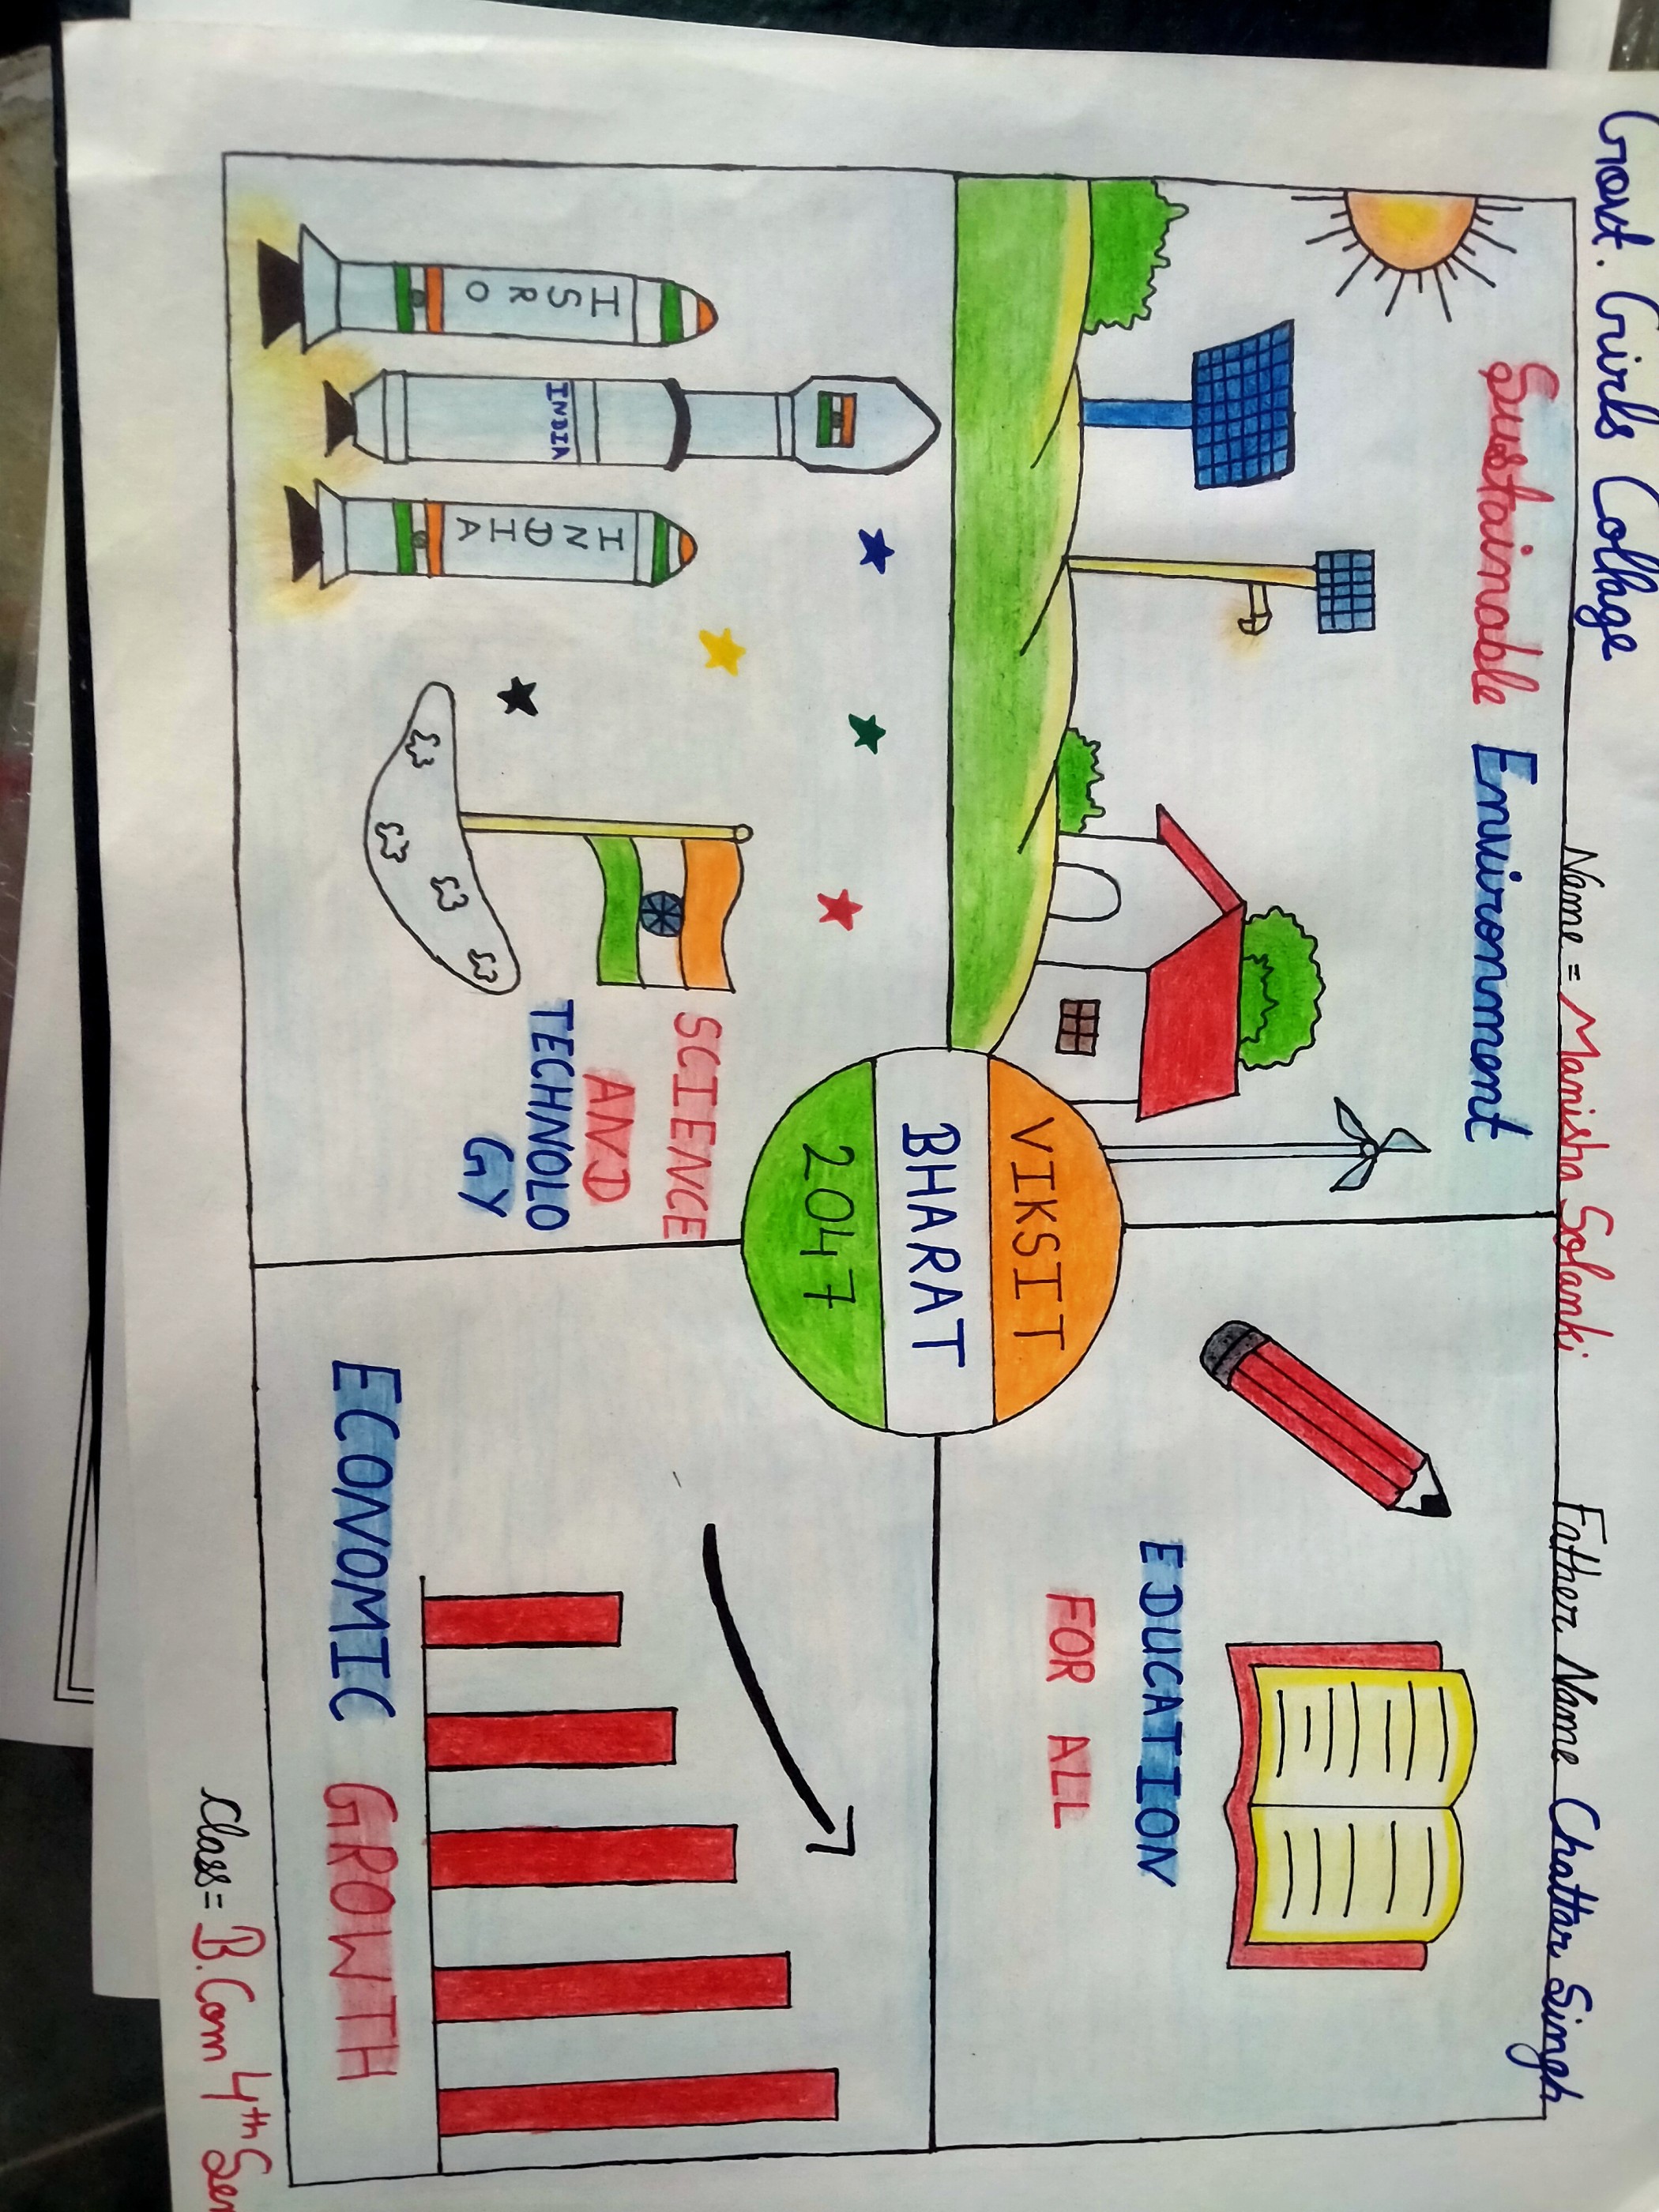 Govt. Girls Collage
Name = Manisha Solanki
Father Name Chattar Singh
Sustainable Environment
EDUCATION
FOR ALL
VIKSIT
BHARAT
2047
ISRO
INDIA
INDIA
SCIENCE
AND
TECHNOLO
GY
ECONOMIC GROWTH
Class = B.Com 4th Sem